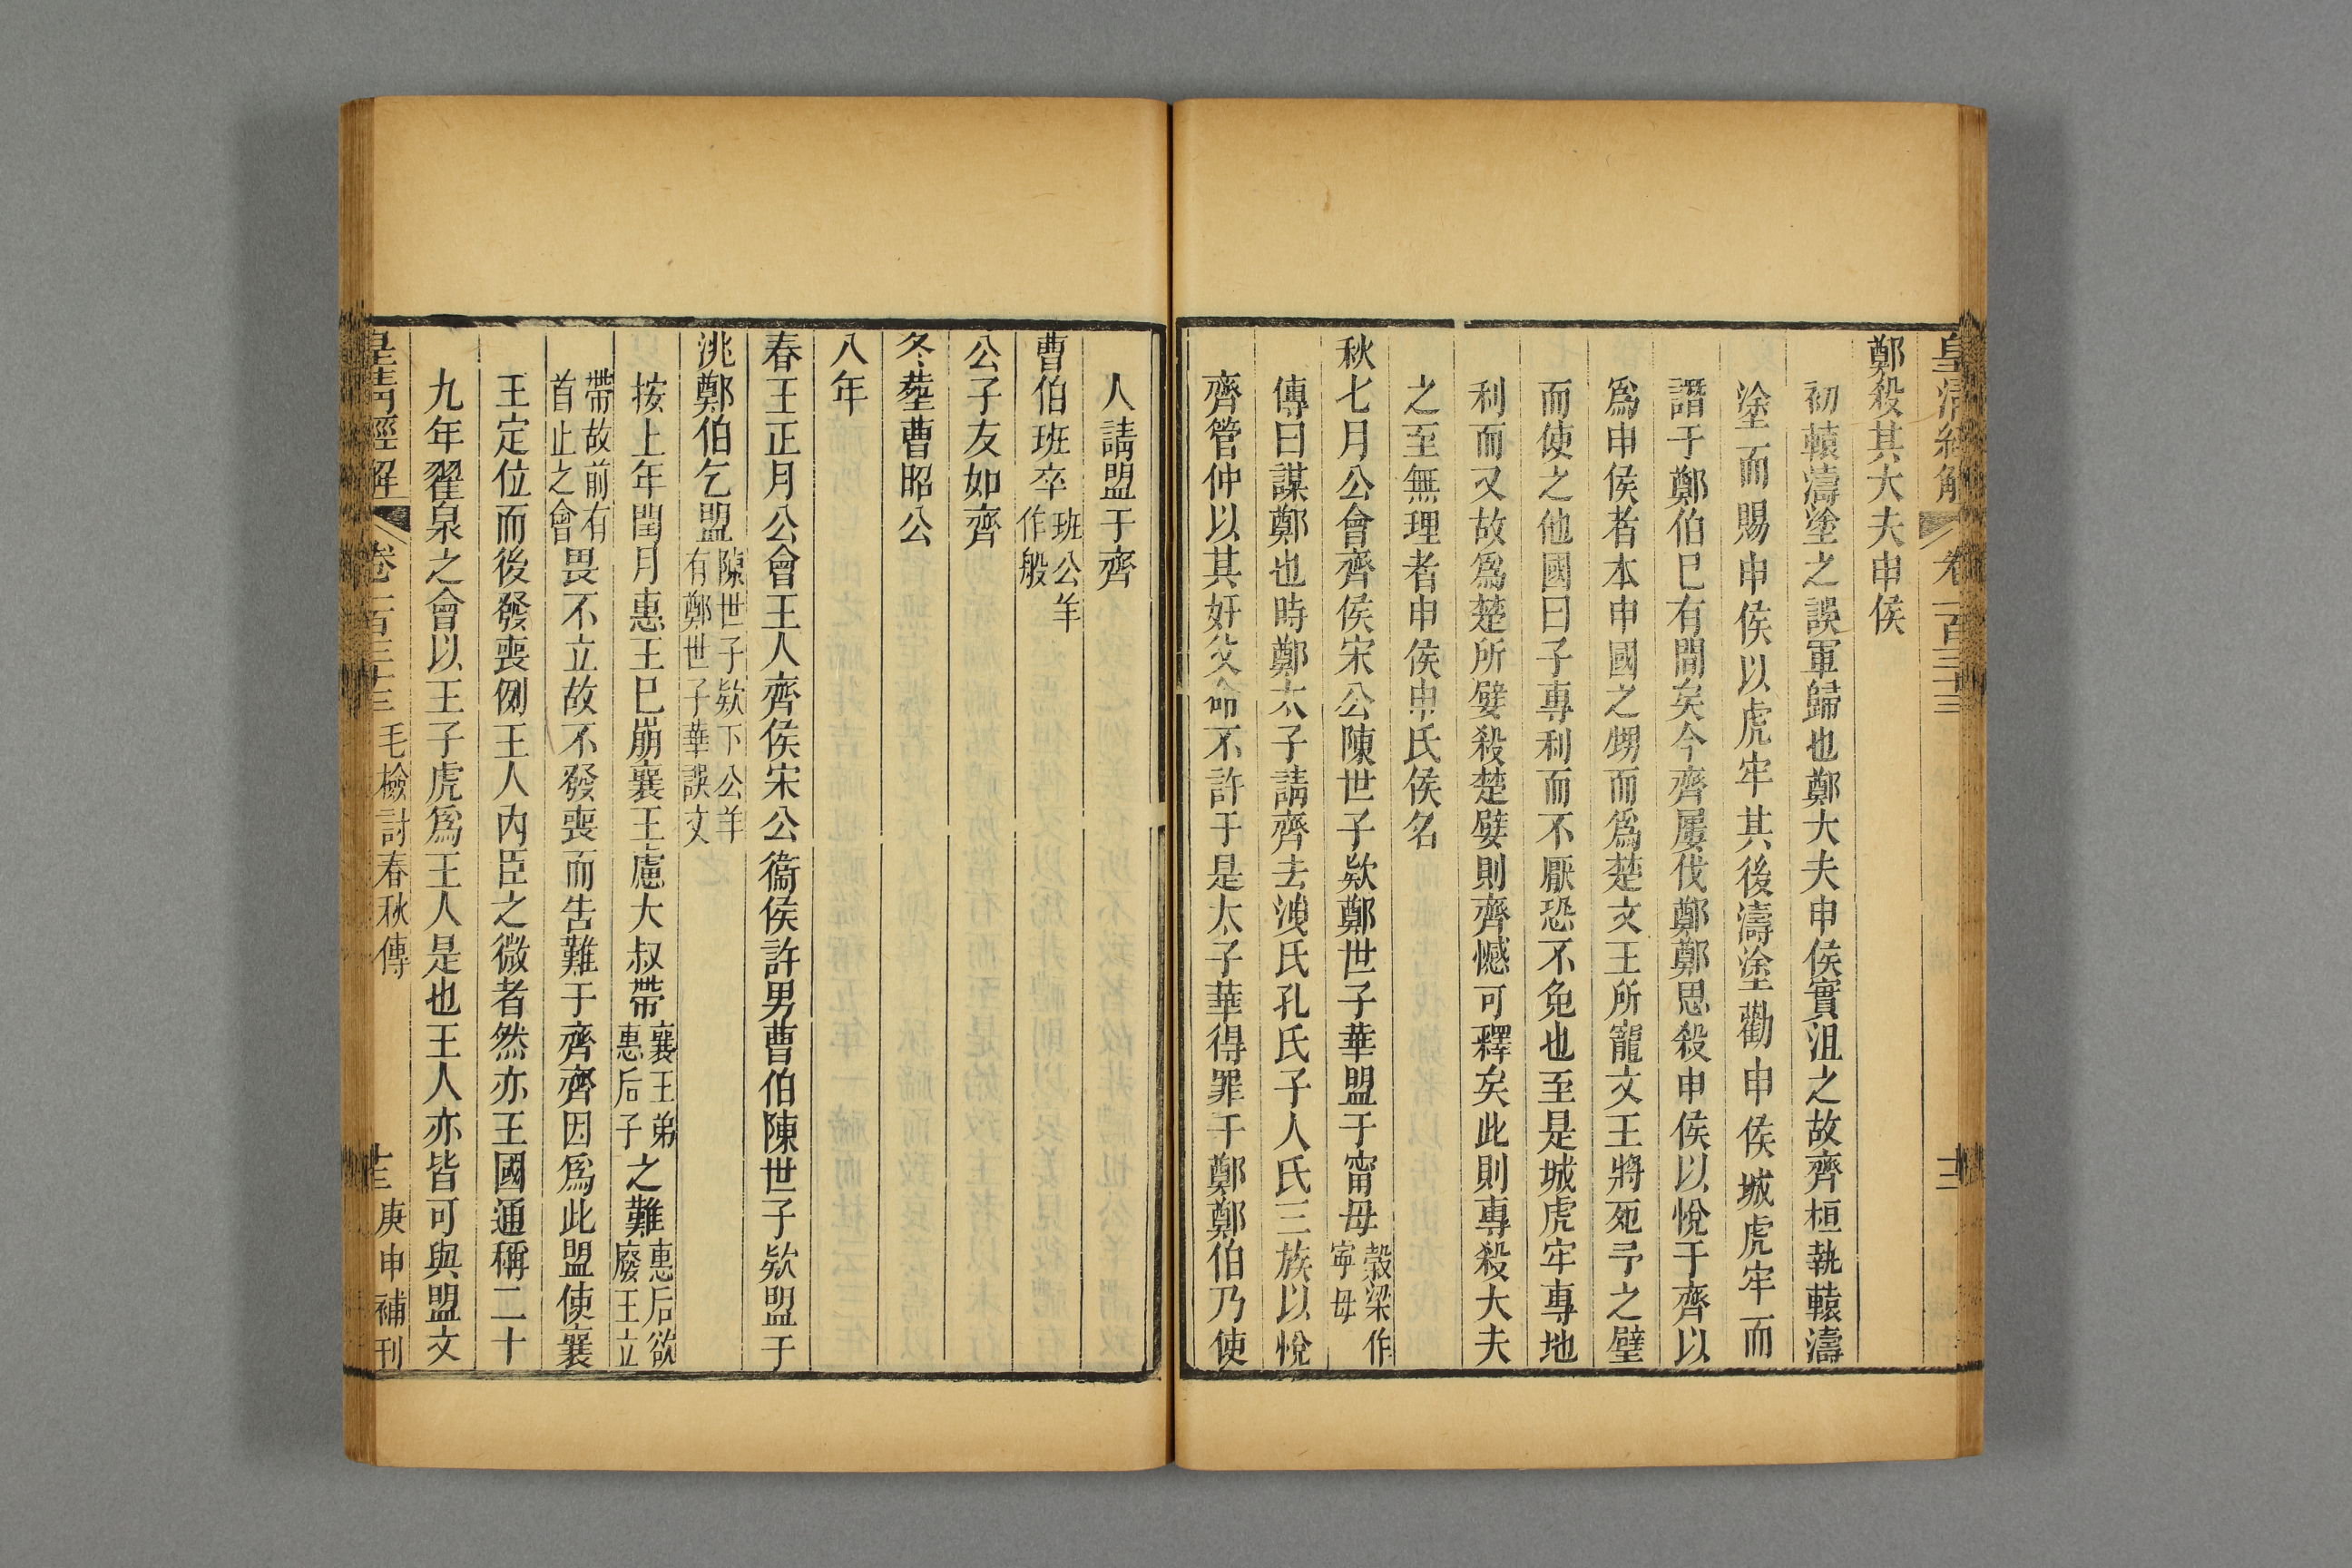 皇清經解 卷一百三十三 十二
鄭殺其大夫申侯
初轅濤塗之誤軍歸也鄭大夫申侯實沮之故齊桓執轅濤
塗而賜申侯以虎牢其後濤塗勸申侯城虎牢而
譖于鄭伯巳有間矣今齊屢伐鄭鄭思殺申侯以悅于齊以
爲申侯者本申國之甥而爲楚文王所寵文王將死予之璧
而使之他國曰子專利而不厭恐不免也至是城虎牢專地
利而又故爲楚所嬖殺楚嬖則齊憾可釋矣此則專殺大夫
之至無理者申侯申氏侯名
秋七月公會齊侯宋公陳世子欵鄭世子華盟于甯母穀梁作寧母
傳曰謀鄭也時鄭太子請齊去洩氏孔氏子人氏三族以悅
齊管仲以其奸父命不許于是太子華得罪于鄭鄭伯乃使
人請盟于齊
曹伯班卒班公羊作般
公子友如齊
冬葬曹昭公
八年
春王正月公會王人齊侯宋公衞侯許男曹伯陳世子欵盟于
洮鄭伯乞盟陳世子欵下公羊有鄭世子華誤文
按上年閏月惠王巳崩襄王慮大叔帶襄王弟惠后子之難惠后欲廢王立
帶故前有首止之會畏不立故不發喪而告難于齊齊因爲此盟使襄
王定位而後發喪例王人內臣之微者然亦王國通稱二十
九年翟泉之會以王子虎爲王人是也王人亦皆可與盟文
皇清經解 卷一百三十三 毛檢討春秋傳 十三 庚申補刊